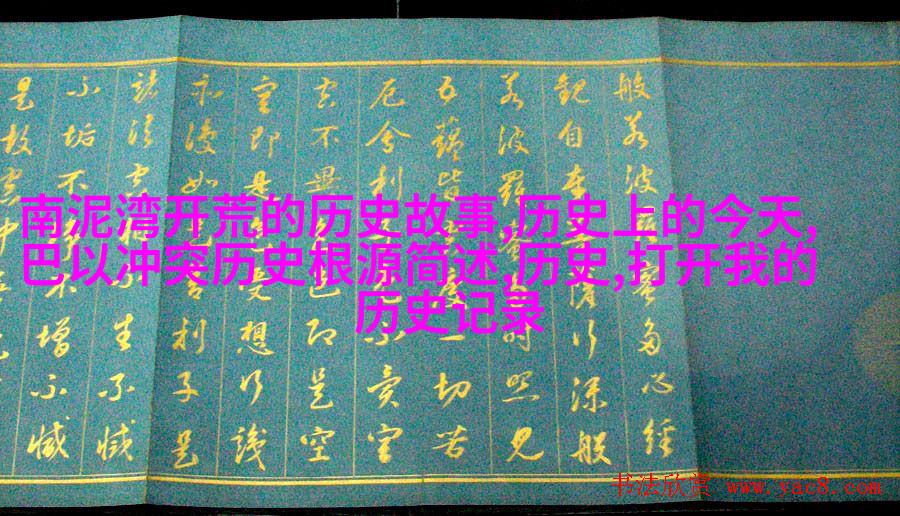 南泥湾开荒的历史故事,历史上的今天,
巴以冲突历史根源简述,历史,打开我的
历史记录
般若波羅蜜多心経
觀自在菩薩行深般
若波羅蜜多時照見
五蘊皆空度一切苦
厄舍利子色不異空
空不異色色即是空
空即是色受想行識
亦復如是舍利子是
諸法空相不生不滅
不垢不淨不增不減
是故空中
书法欣赏 www.yac8.com